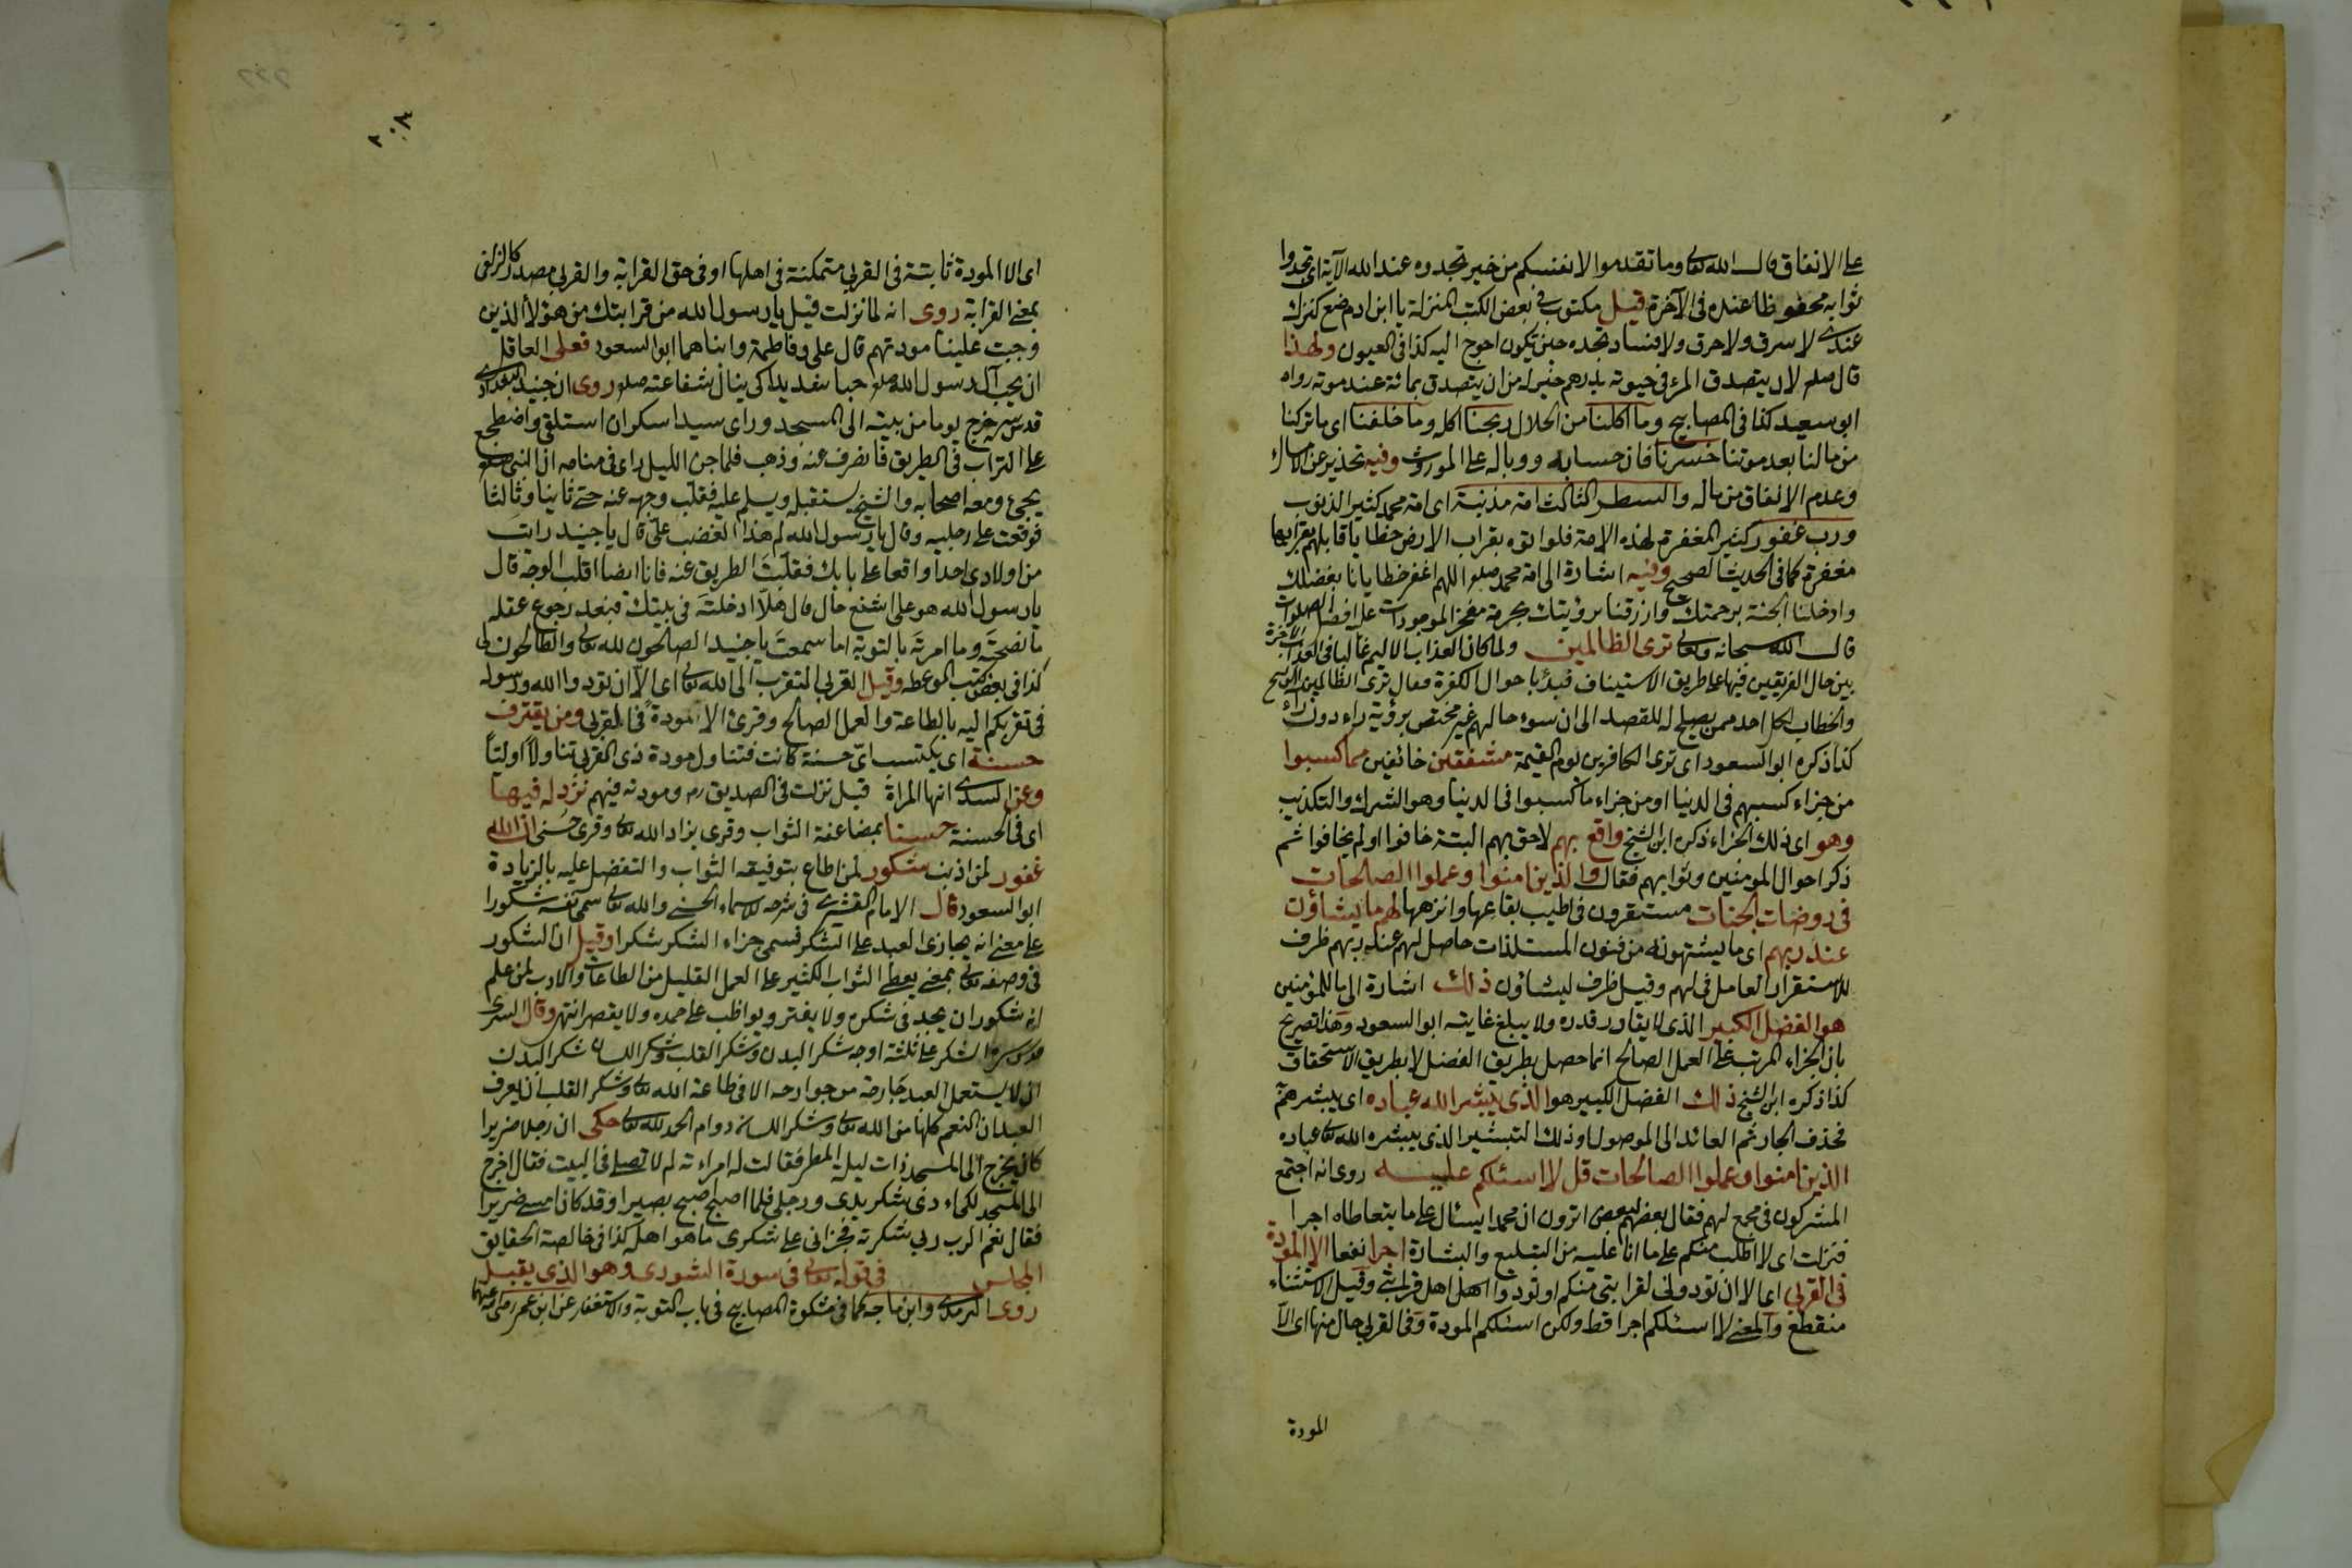 على الانفاق قال الله تعالى وما تقدموا لانفسكم من خير تجدوه عند الله الآية اى تجدوا
ثوابه محفوظا عنده فى الآخرة قيل مكتوب فى بعض الكتب المنزلة يا ابن ادم ضع كنزك
عندى لا سرق ولا حرق ولا فساد تجده حين تكون احوج اليه كذا فى العيون ولهذا
قال صلعم لان يتصدق المرء فى حيوته بدرهم خير له من ان يتصدق بمائة عند موته رواه
ابو سعيد كذا فى المصابيح وما اكلنا من الحلال ربحنا اكله وما خلفنا اى ما تركنا
من مالنا بعد موتنا خسرنا فان حسابه ووباله على الموروث وفيه تحذير عن الامساك
وعدم الانفاق من ماله والسطر الثالث امة مذنبة اى امة محمد كثير الذنوب
ورب غفور كثير المغفرة لهذه الامة فلو اتوه بقراب الارض خطايا قابلهم بقرابها
مغفرة كما فى الحديث الصحيح وفيه اشارة الى امة محمد صلعم اللهم اغفر خطايانا بفضلك
وادخلنا الجنة برحمتك وارزقنا برؤيتك بحرمة مفخر الموجودات عليه افضل الصلوات
قال الله سبحانه وتعالى ترى الظالمين ولما كان العذاب الاليم غالبا فى العذاب الآخرة
بين حال الفريقين فيها على طريق الاستيناف فبدأ باحوال الكفرة فقال ترى الظالمين
والخطاب لكل احد ممن يصلح له للقصد الى ان سوء حالهم غير مختص برؤية راء دون راء
كذا ذكره ابو السعود اى ترى الكافرين يوم القيمة مشفقين خائفين مما كسبوا
من جزاء كسبهم فى الدنيا او من جزاء ما كسبوا فى الدنيا وهو الشرك والتكذيب
وهو اى ذلك الجزاء ذكره ابن الشيخ واقع بهم لاحق بهم البتة خافوا او لم يخافوا ثم
ذكر احوال المؤمنين وثوابهم فقال والذين امنوا وعملوا الصالحات
فى روضات الجنات مستقرون فى اطيب بقاعها وانزهها لهم ما يشاؤن
عند ربهم اى ما يشتهونه من فنون المستلذات حاصل لهم عند ربهم ظرف
للاستقرار العامل فى لهم وقيل ظرف ليشاؤن ذلك اشارة الى ما للمؤمنين
هو الفضل الكبير الذى لا يقادر قدره ولا يبلغ غايته ابو السعود وهذا تصريح
بان الجزاء المرتب على العمل الصالح انما حصل بطريق الفضل لا بطريق الاستحقاق
كذا ذكره ابن الشيخ ذلك الفضل الكبير هو الذى يبشر الله عباده اى يبشرهم
فحذف الجار ثم العائد الى الموصول او ذلك التبشير الذى يبشره الله تعالى عباده
الذين امنوا وعملوا الصالحات قل لا اسئلكم عليه روى انه اجتمع
المشركون فى مجمع لهم فقال بعضهم لبعض اترون ان محمدا يسئال على ما يتعاطاه اجرا
فنزلت اى لا اطلب منكم على ما انا عليه من التبليغ والبشارة اجرا نفعا الا المودة
فى القربى اى الا ان تودونى لقرابتى منكم او تودوا اهل قرابتى وقيل الاستثناء
منقطع والمعنى لا اسئلكم اجرا قط ولكن اسئلكم المودة وفى القربى حال منها اى الا
المودة
٢٠٨
اى الا المودة ثابتة فى القربى متمكنة فى اهلها او فى حق القرابة والقربى مصدر كالزلفى
بمعنى القرابة روى انه لما نزلت قيل يا رسول الله من قرابتك من هؤلاء الذين
وجبت علينا مودتهم قال على وفاطمة وابناهما ابو السعود فعلى العاقل
ان يحب آل رسول الله صلعم حبا شديدا كى ينال شفاعته صلعم روى ان جنيد البغدادى
قدس سره خرج يوما من بيته الى المسجد وراى سيدا سكران استلقى واضطجع
على التراب فى الطريق فانصرف عنه وذهب فلما جن الليل راى فى منامه ان النبى صلعم
يجئ ومعه اصحابه والشيخ يستقبله ويسلم عليه فقلب وجهه عنه حتى ثانيا وثالثا
فوقعت على رجليه وقال يا رسول الله لم هذا الغضب على قال يا جنيد رايت
من اولادى احدا واقعا على بابك فقلبت الطريق عنه فانا ايضا اقلب الوجه قال
يا رسول الله هو على اشنع حال قال هلا ادخلته فى بيتك فبعد رجوع عقله
ما نصحته وما امرته بالتوبة اما سمعت يا جنيد الصالحون لله تعالى والطالحون لى
كذا فى بعض كتب الموعظة وقيل القربى التقرب الى الله تعالى اى الا ان تودوا الله ورسوله
فى تقربكم اليه بالطاعة والعمل الصالح وقرئ الا مودة فى القربى ومن يقترف
حسنة اى يكتسب اى حسنة كانت فتناول مودة ذى القربى تناولا اوليا
وعن السدى انها المراة قيل نزلت فى الصديق رض ومودته فيهم نزد له فيها
اى فى الحسنة حسنا بمضاعفة الثواب وقرئ يزد الله تعالى وقرئ حسنى ان الله
غفور لمن اذنب شكور لمن اطاع بتوفيقه الثواب والتفضل عليه بالزيادة
ابو السعود قال الامام القشيرى فى شرحه للاسماء الحسنى والله تعالى سمى نفسه شكورا
على معنى انه يجازى العبد على الشكر فسمى جزاء الشكر شكرا وقيل ان الشكور
فى وصفه تعالى بمعنى يعطى الثواب الكثير على العمل القليل من الطاعات والادب لمن علم
انه شكور ان يجد فى شكره ولا يفتر ويواظب على حمده ولا يقصر انتهى وقال السرى
قدس سره الشكر على ثلثة اوجه شكر البدن وشكر القلب وشكر اللسان شكر البدن
ان لا يستعمل العبد جارحة من جوارحه الا فى طاعة الله تعالى وشكر القلب ان يعرف
العبد ان النعم كلها من الله تعالى وشكر اللسان دوام الحمد لله تعالى حكى ان رجلا ضريرا
كان يخرج الى المسجد ذات ليلة المطر فقالت له امراءته لم لا تصلى فى البيت فقال اخرج
الى المسجد لكى اءدى شكر يدى ورجلى فلما اصبح اصبح بصيرا وقد كان امسى ضريرا
فقال نعم الرب ربى شكرته فجزانى على شكرى ما هو اهله كذا فى خالصة الحقايق
المجلس فى قوله تعالى فى سورة الشورى وهو الذى يقبل
روى الترمذى وابن ماجه كما فى مشكوة المصابيح فى باب التوبة والاستغفار عن ابن عمر رضى الله عنهما